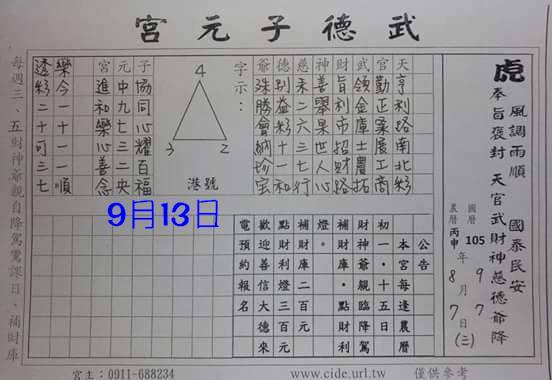 武德子元宮
虎
風調雨順 國泰民安
奉旨褒封 天官武財神慈德爺降
國曆 105 年 9 月 7 日 (三)
農曆 丙申 年 8 月 7 日
天亨利路南北彩
官勤正家廣工商
武領金庫士農拓
財旨利市招財路
神善舉果世人心
慈未二六十七行
德到益二十三和
爺珠勝會納珍宝
字示：
4
3 2
港號
子協同心耀百福
元中九七三二央
宮進和樂心善念
樂今十一十一順
透彩二十可三七
9月13日
公告
本宮每逢農曆
初一‧十五日
財神爺親臨降駕
補財庫‧點財利
燈。
補財庫二百元
點財利燈三百元
歡迎善信大德來
電預約報名
每週三、五財神爺親自降駕賜課日、補財庫
宮主：0911-688234 www.cide.url.tw 僅供參考